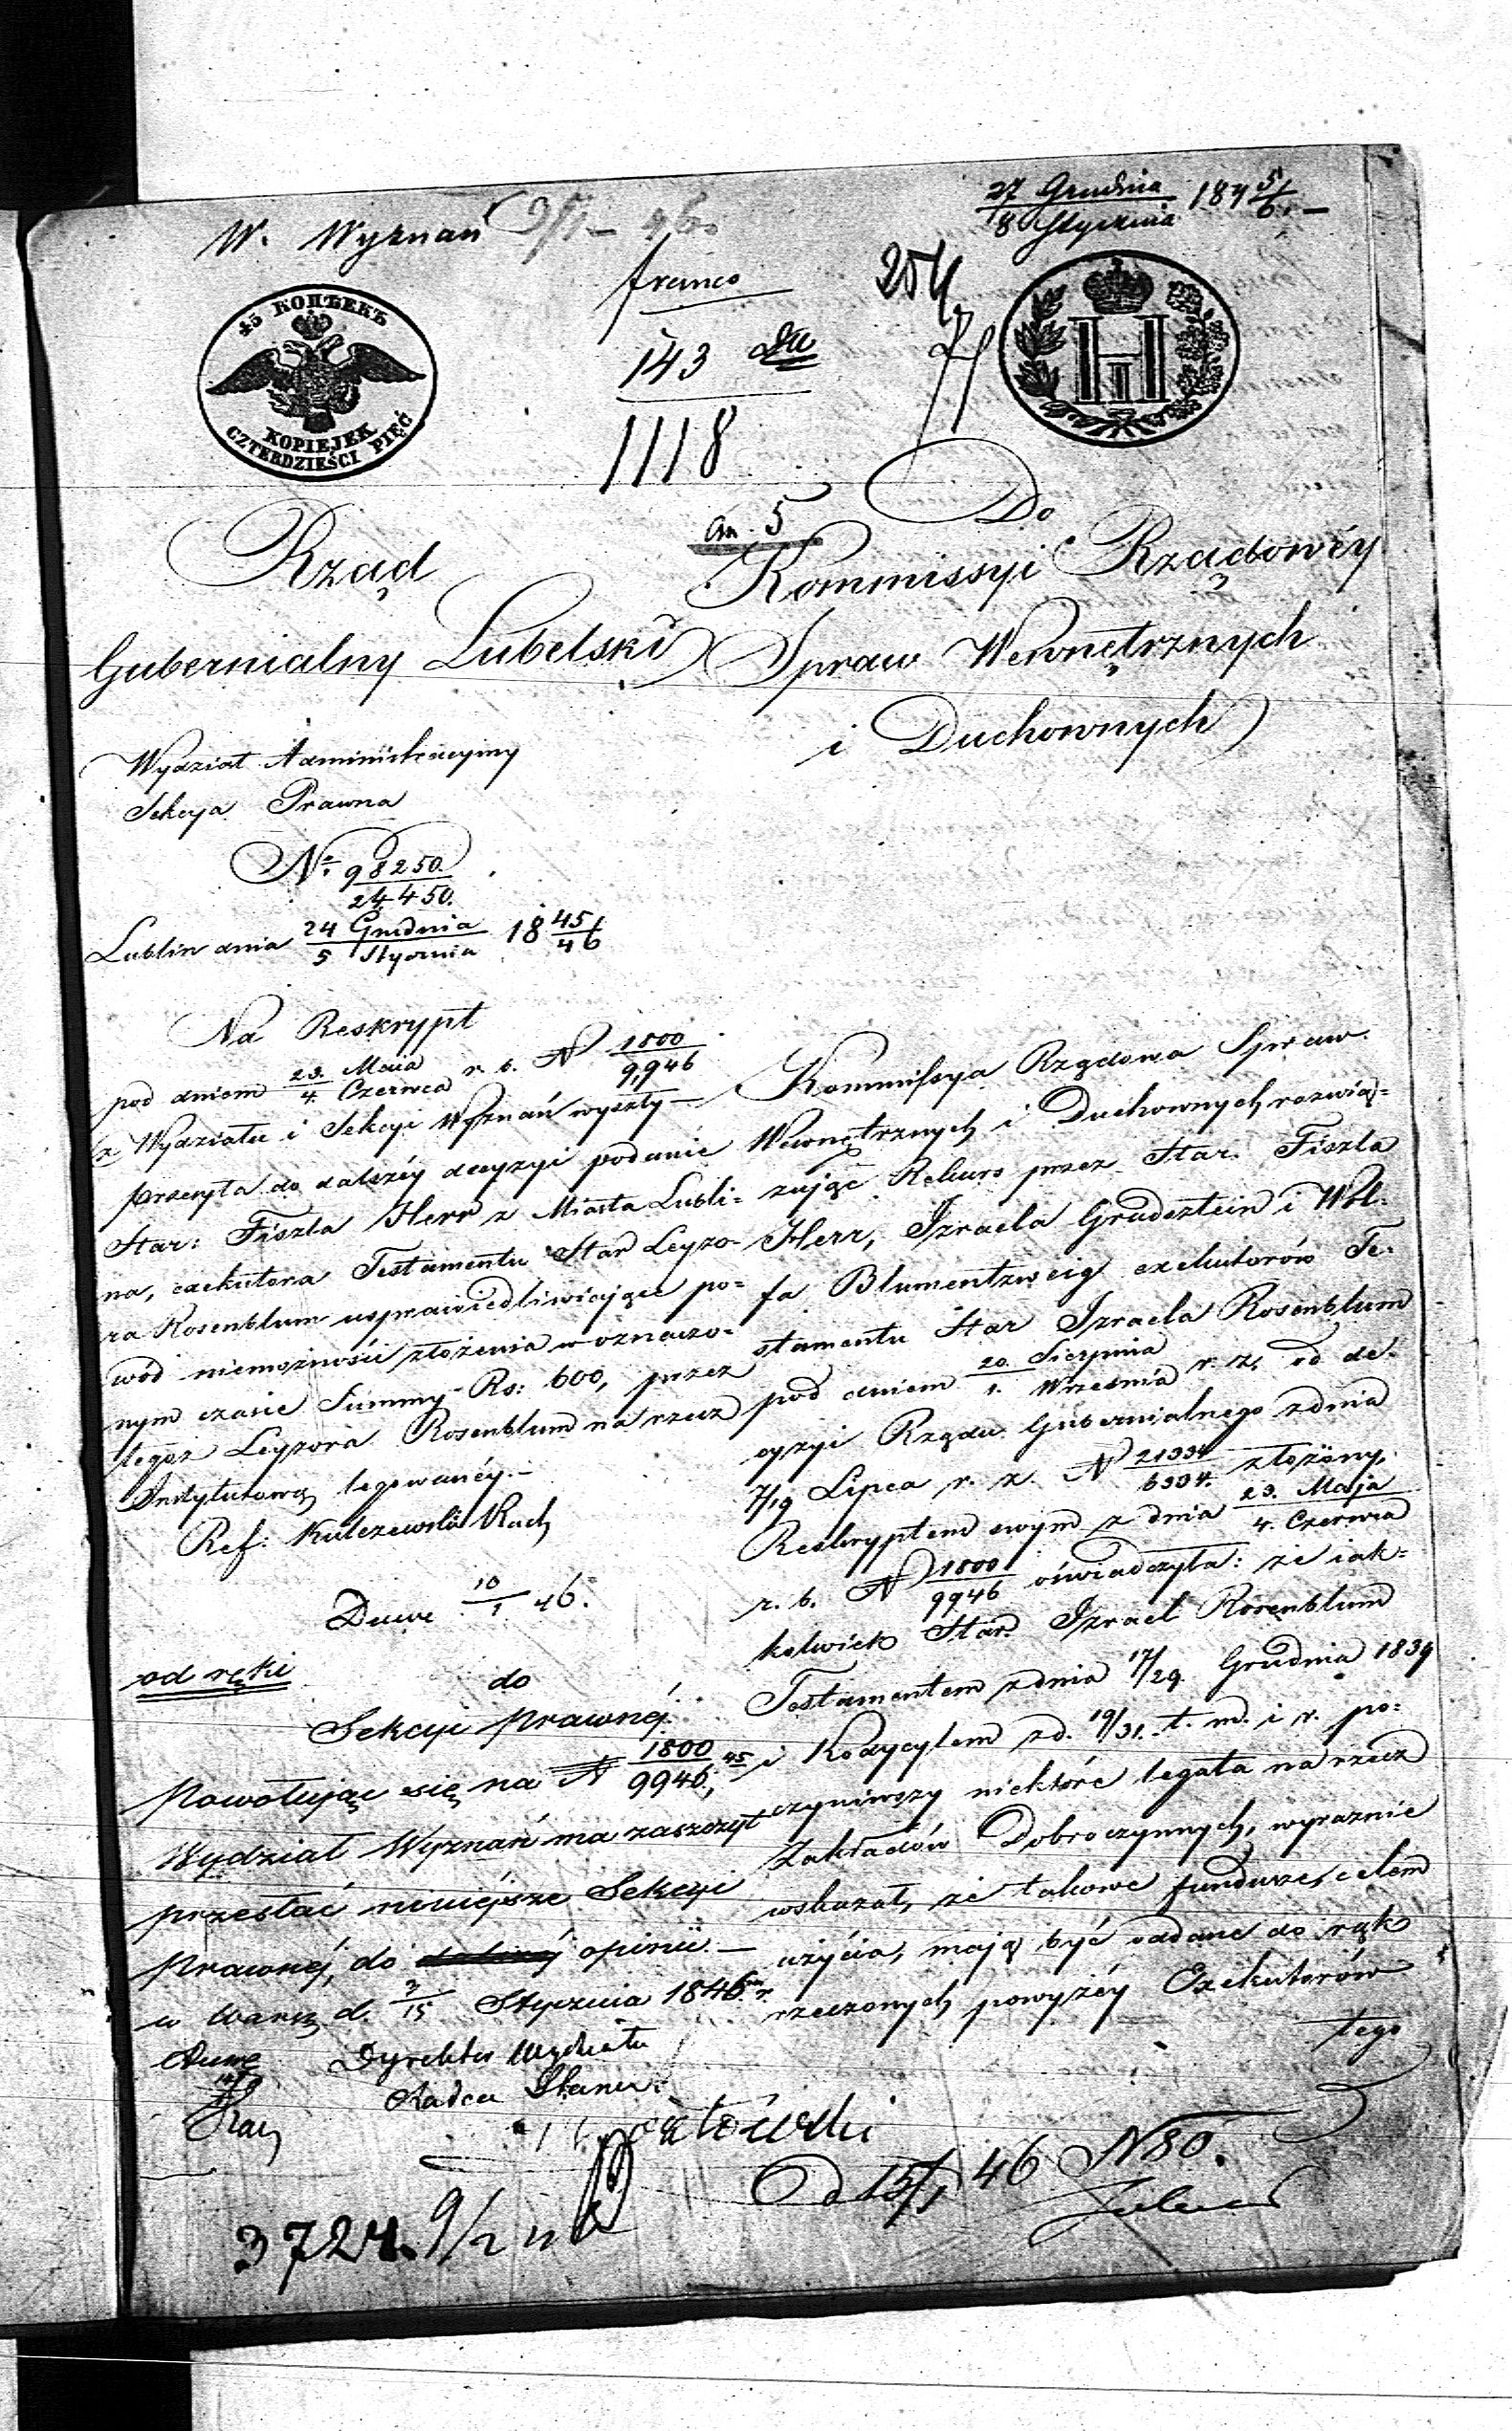 W. Wyznań 9/1 – 46.
27 Grudnia / 8 Stycznia 184 5/6. –
franco
254
45 КОПѢЕКЪ
KOPIEJEK
CZTERDZIEŚCI PIĘĆ
H I
143
1118
an. 5
Rząd
Gubernialny Lubelski
Wydział Administracyjny
Sekcya Prawna
Nº 98250. / 24450.
Lublin dnia 24 Grudnia / 5 Stycznia 18 45/46
Na Reskrypt
pod dniem 23. Maia / 4. Czerwca r. b. N 1800 / 9,946
z Wydziału i Sekcyi Wyznań wyszły –
przesyła do dalszéy decyzyi podanie
Star: Fiszla Herr z Miasta Lubli=
na, exekutora Testamentu Star Leyzo-
ra Rosenblum usprawiedliwiające po=
wód niemożności złożenia w oznaczo=
nym czasie Summy Rs: 600, przez
tegoż Leyzora Rosenblum na rzecz
Instytutową legowanéy. –
Ref: Kulczewski Rach
10/1 46.
od ręki
do
Sekcyi Prawnéj.
Powołując się na N 1800 / 9946, 45
Wydział Wyznań ma zaszczyt
przesłać niniéjsze Sekcyi
Prawnéj, do opinii. –
w Warsz d. 3/15 Stycznia 1846 r.
Dyrektor Wydziału
Radca Stanu
3724. 9/2
Do
Kommissyi Rządowéy
Spraw Wewnętrznych
i Duchownych
Kommissya Rządowa Spraw
Wewnętrznych i Duchownych rozwią=
zując Rekurs przez Star. Fiszla
Herr, Izraela Grudsztein i Wol:
fa Blumentzweig exekutorów Te:
stamentu Star Izraela Rosenblum
pod dniem 20. Sierpnia / 1. Września r. z. od de:
cyzyi Rządu Gubernialnego z dnia
7/19 Lipca r. z. N 21334 / 6334. złożony,
Reskryptem swym z dnia 23. Maja / 4. Czerwca
r. b. N 1800 / 9946 oświadczyła: że iak=
kolwiek Star. Izrael Rosenblum
Testamentem z dnia 17/29. Grudnia 1839
i Kodycylem z d. 19/31. t. m. i r. po:
czyniwszy niektóre legata na rzecz
Zakładów Dobroczynnych, wyraznie
wskazał, że takowe fundusze, celem
użycia, mają być oddane do rąk
rzeczonych powyżéy Exekutorów
tego
d 15/1 46 N 80.